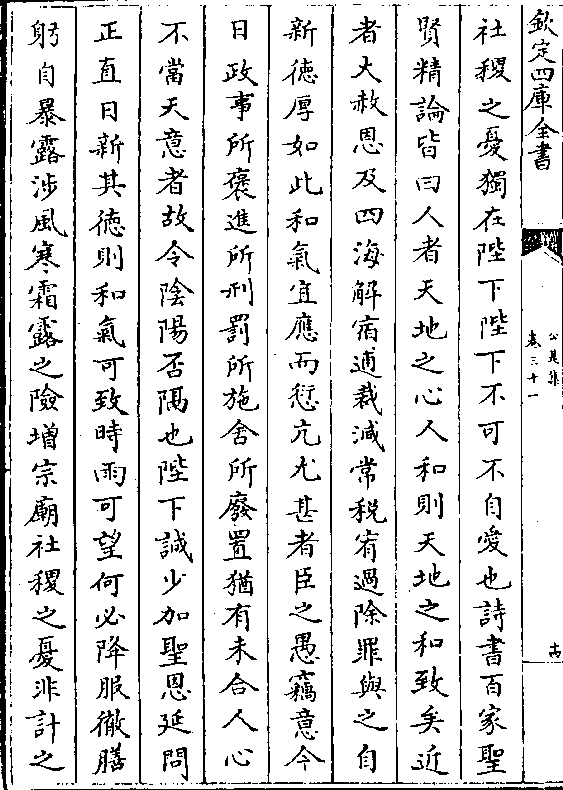 欽定四庫全書
公是集
卷三十一
十四
社稷之憂獨在陛下陛下不可不自愛也詩書百家聖
賢精論皆曰人者天地之心人和則天地之和致矣近
者大赦恩及四海解宿逋裁減常税宥過除罪與之自
新德厚如此和氣宜應而愆亢尤甚者臣之愚竊意今
日政事所褒進所刑罰所施舍所廢置猶有未合人心
不當天意者故令陰陽否隔也陛下誠少加聖恩延問
正直日新其徳則和氣可致時雨可望何必降服徹膳
躬自暴露涉風寒霜露之險增宗廟社稷之憂非計之